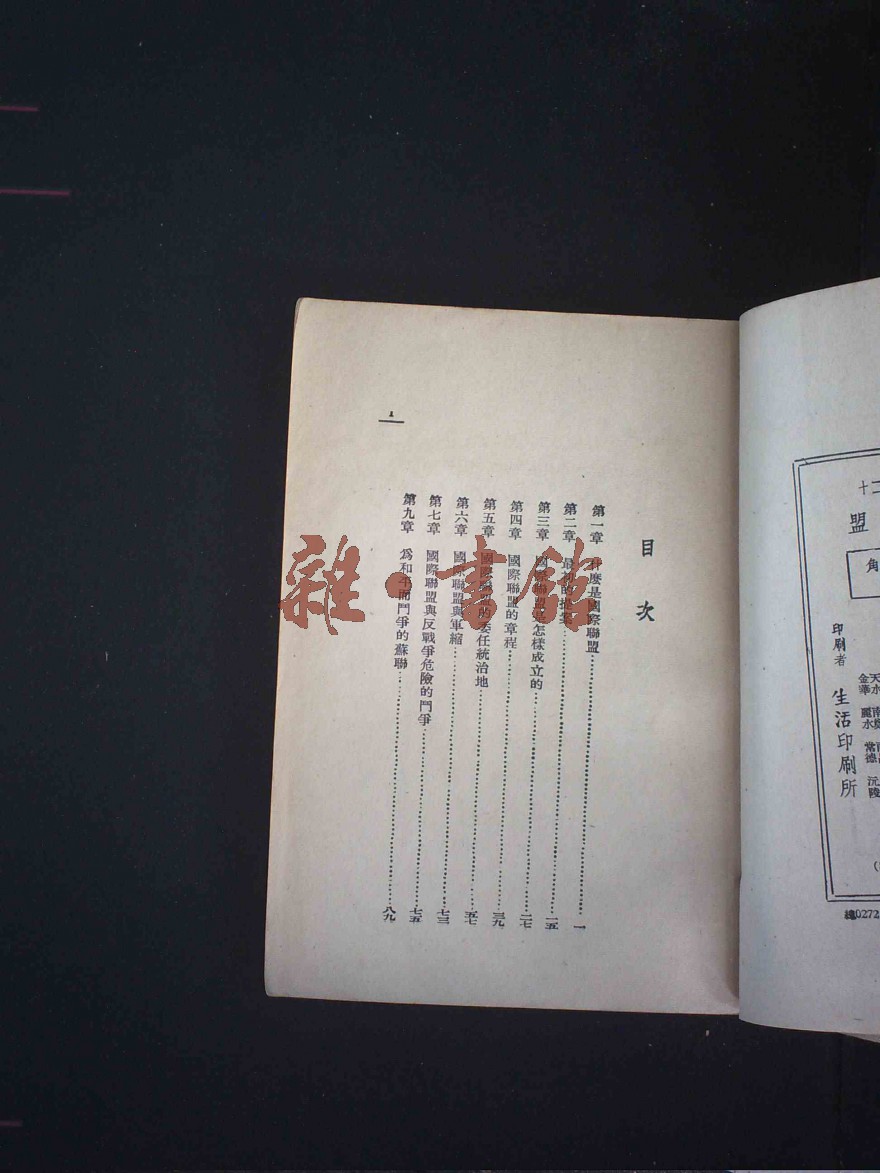 目次
第一章 什麼是國際聯盟……一
第二章 最初的提案……一五
第三章 國際聯盟是怎樣成立的……二七
第四章 國際聯盟的章程……三九
第五章 國際聯盟的委任統治地……五七
第六章 國際聯盟與軍縮……七三
第七章 國際聯盟與反戰爭危險的鬥爭……七五
第九章 為和平而鬥爭的蘇聯……八九
1
雜·書館
盟
角
天水
金華 麗水 常德 沅陵
印刷者 生活印刷所
0272